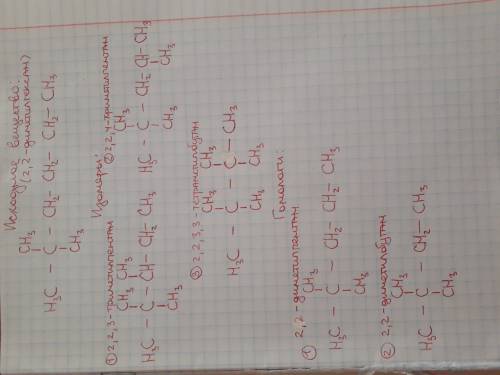 Исходное вещество:
(2,2-диметилгексан)
CH₃
H₃C – C – CH₂ – CH₂ – CH₂ – CH₃
CH₃
Изомеры:
① 2,2,3-триметилпентан
CH₃ CH₃
H₃C – C – CH – CH₂ – CH₃
CH₃
② 2,2,4-триметилпентан
CH₃
H₃C – C – CH₂ – CH – CH₃
CH₃ CH₃
③ 2,2,3,3-тетраметилбутан
CH₃ CH₃
H₃C – C – C – CH₃
CH₃ CH₃
Гомологи:
① 2,2-диметилпентан
CH₃
H₃C – C – CH₂ – CH₂ – CH₃
CH₃
② 2,2-диметилбутан
CH₃
H₃C – C – CH₂ – CH₃
CH₃